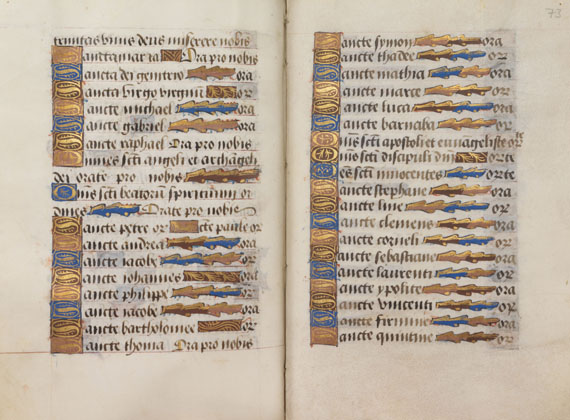 trinitas vnus deus miserere nobis
Sancta maria Ora pro nobis
Sancta dei genitrix ora
Sancta virgo virginu or
Sancte michael ora
Sancte gabriel ora
Sancte raphael Ora pro nobis
Omnes scti angeli et archangeli
dei orate pro nobis
Omnes scti beatorum spirituum or
dines Orate pro nobis
Sancte petre or Scte paule or
Sancte andrea ora
Sancte iacobe ora
Sancte iohannes or
Sancte philippe ora
Sancte iacobe ora
Sancte bartholomee or
Sancte thoma Ora pro nobis
73
Sancte symon ora
Sancte thadee or
Sancte mathia ora
Sancte marce or
Sancte luca ora
Sancte barnaba or
Oms scti apostoli et euuagelistе orte
Oms scti discipuli dni orte
Oes scti innocentes orte
Sancte stephane ora
Sancte line or
Sancte clemens ora
Sancte corneli or
Sancte sebastiane ora
Sancte laurenti or
Sancte ypolite ora
Sancte vincenti or
Sancte firmine ora
Sancte quintine or